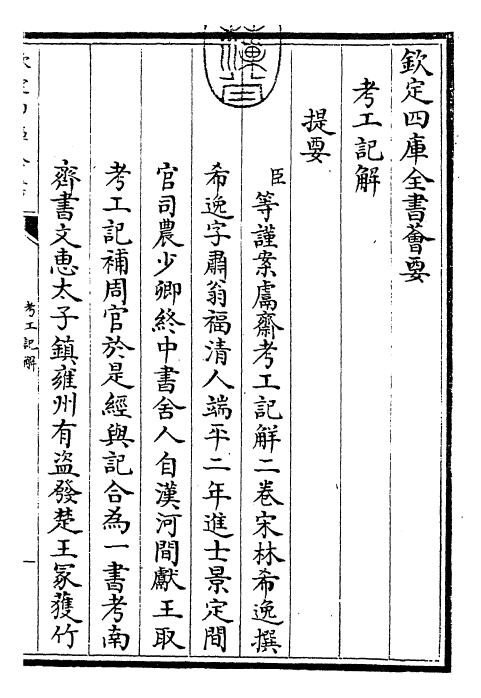 欽定四庫全書薈要
考工記解
提要
臣等謹案鬳齋考工記解二卷宋林希逸撰
希逸字肅翁福清人端平二年進士景定間
官司農少卿終中書舍人自漢河間獻王取
考工記補周官於是經與記合為一書考南
齊書文惠太子鎮雍州有盗發楚王冢獲竹
考工記解
一